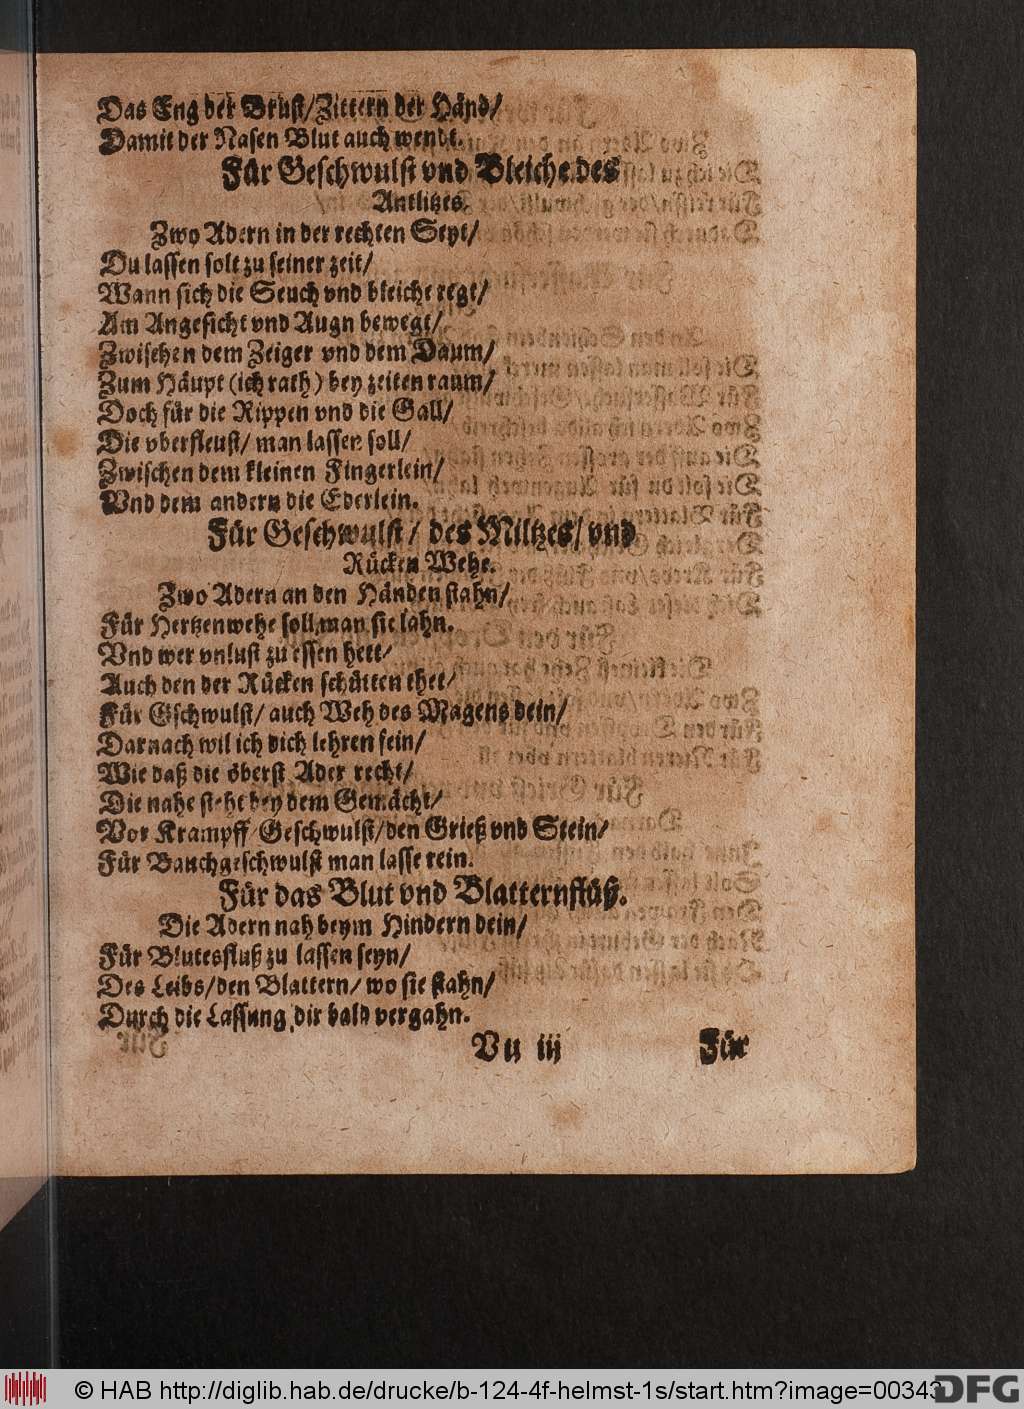 Das Eng der Brust/Zittern der Händ/
Damit der Nasen Blut auch wendt.
Für Geschwulst vnd Bleiche des
Antlitzes.
Zwo Adern in der rechten Seyt/
Du lassen solt zu seiner zeit/
Wann sich die Seuch vnd bleiche regt/
Am Angesicht vnd Augn bewegt/
Zwischen dem Zeiger vnd dem Daum/
Zum Häupt (ich rath) bey zeiten raum/
Doch für die Rippen vnd die Gall/
Die vberfleust/ man lassen soll/
Zwischen dem kleinen Fingerlein/
Vnd dem andern die Ederlein.
Für Geschwulst/ des Miltzes/ vnd
Rücken Wehe.
Zwo Adern an den Händen stahn/
Für Hertzenwehe soll man sie lahn.
Vnd wer vnlust zu essen hett/
Auch den der Rücken schütten thet/
Für Gschwulst/ auch Weh des Magens dein/
Darnach wil ich dich lehren fein/
Wie daß die öberst Ader recht/
Die nahe steht bey dem Gemächt/
Vor Krampff/Geschwulst/den Grieß vnd Stein/
Für Bauchgeschwulst man lasse rein.
Für das Blut vnd Blatternflüß.
Die Adern nah beym Hindern dein/
Für Blutesfluß zu lassen seyn/
Des Leibs/den Blattern/ wo sie stahn/
Durch die Lassung dir bald vergahn.
Vu iij Für
© HAB http://diglib.hab.de/drucke/b-124-4f-helmst-1s/start.htm?image=00343
DFG